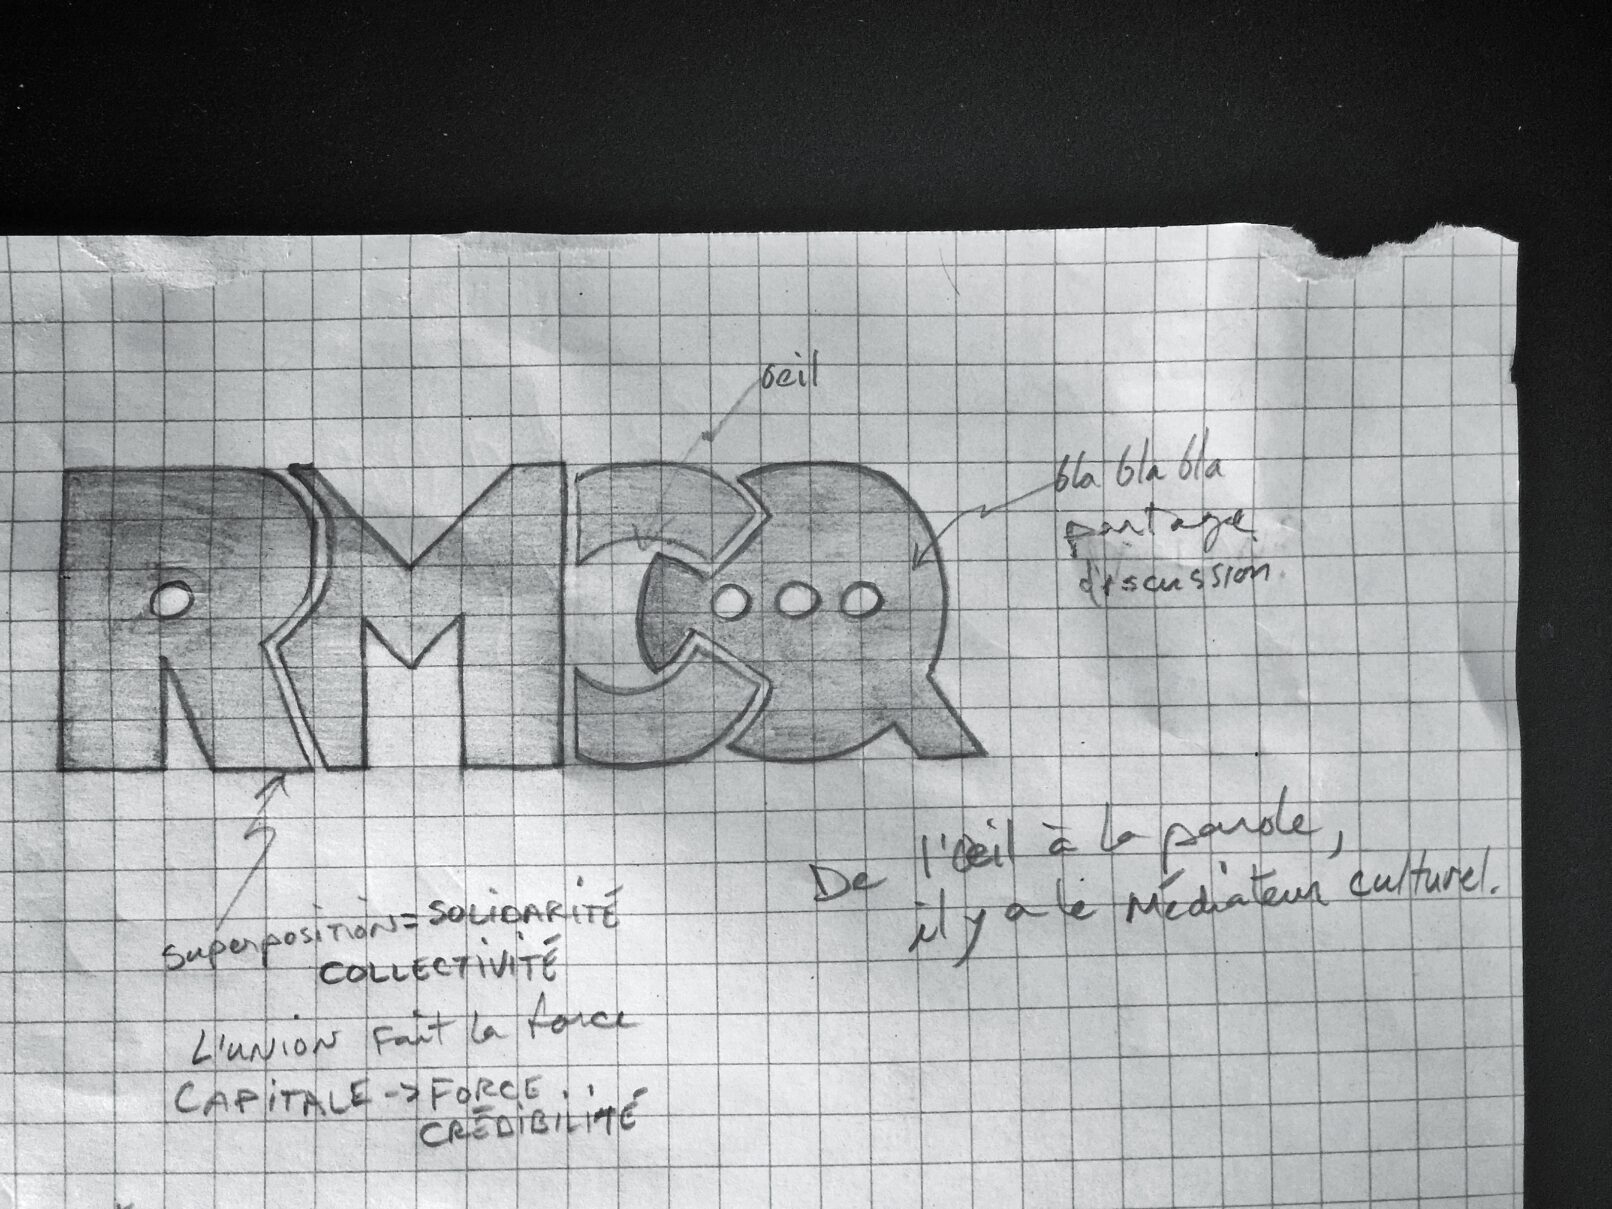 oeil
bla bla bla
partage
discussion.
RMCQ
De l'oeil à la parole,
il y a le Médiateur culturel.
superposition = SOLIDARITÉ
COLLECTIVITÉ
L'union fait la force
CAPITALE -> FORCE
CRÉDIBILITÉ